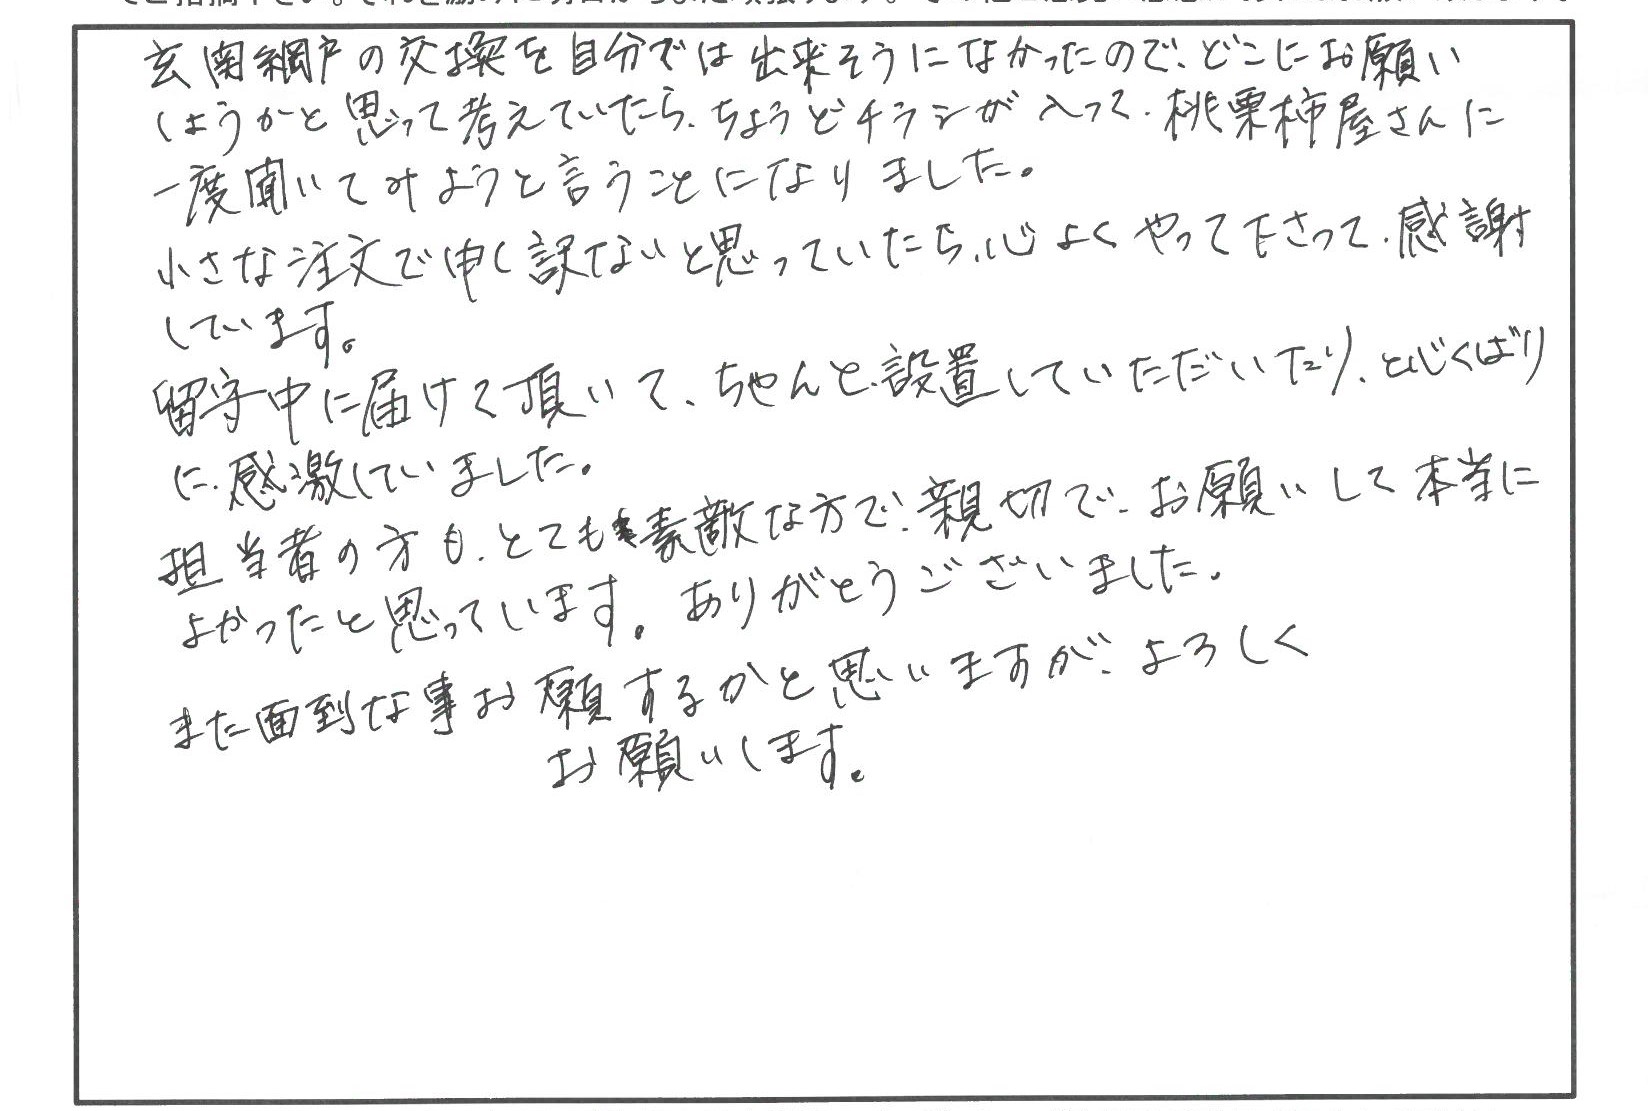 玄関網戸の交換を自分では出来そうになかったので、どこにお願い
しようかと思って考えていたら、ちょうどチラシが入って、桃栗柿屋さんに
一度聞いてみようと言うことになりました。
小さな注文で申し訳ないと思っていたら、心よくやって下さって、感謝
しています。
留守中に届けて頂いて、ちゃんと設置していただいたり、と心くばり
に、感激していました。
担当者の方も、とても素敵な方で、親切で、お願いして本当に
よかったと思っています。ありがとうございました。
また面到な事お願するかと思いますが、よろしく
お願いします。